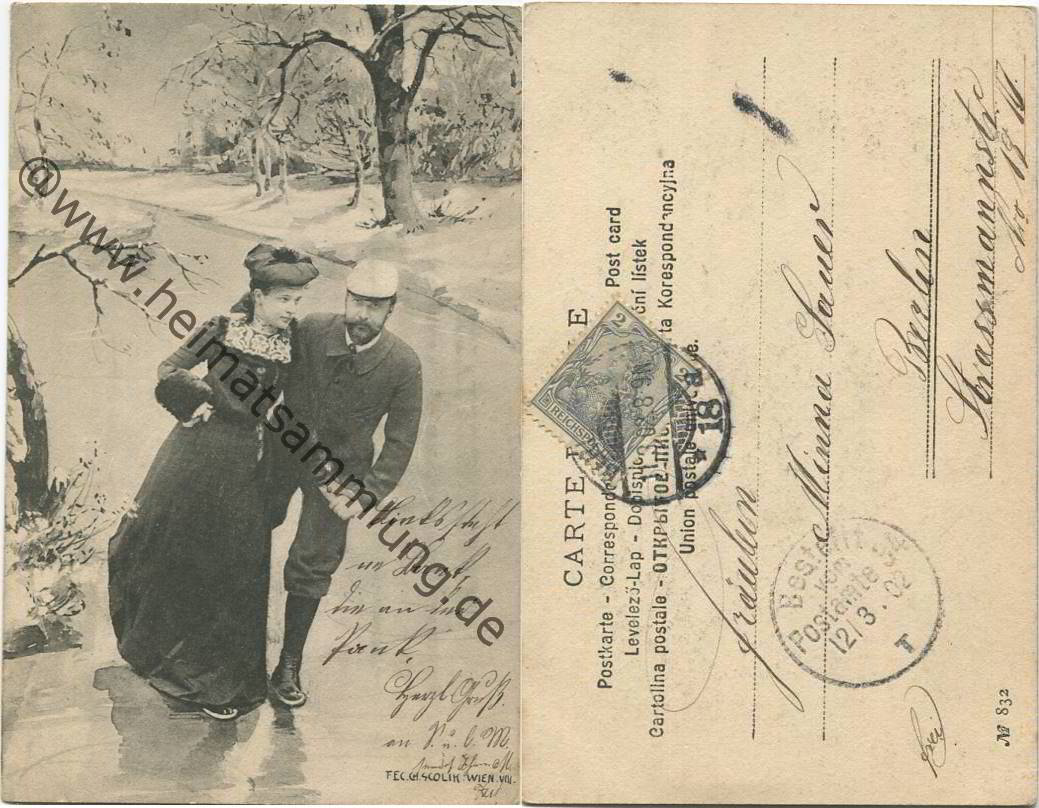 @www.heimatsammmung.de
die an der
Herzl. Gruß.
FEC. CH. SCOLIK. WIEN. VIII.
CARTE
Postkarte - Correspond
Post card
Levelező-Lap - Dopisnic
ční lístek
Cartolina postale - ОТКРЫТОЕ ПИС
ta Korespondancyjna
Union postale univ
2
REICHSPOST
18
Fräulein
Minna Sauer
Berlin
Strassmannstr.
No 17 II.
frei
Bestellt
vom
Postamte 34
12/3.02
T
№ 832